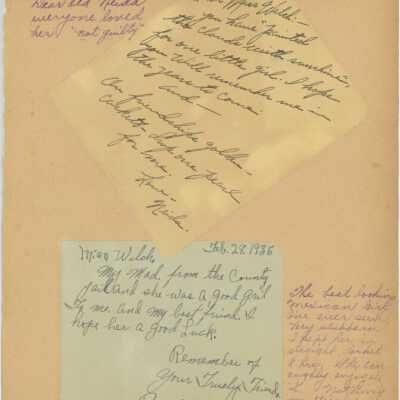 Dear old Neida
everyone loved
her "not guilty"
Miss Welch –
you have "painted
the clouds with sunshine"
for one little girl. I hope
you will remember me in
the years to come
and –
Our friendship's golden
drop one pearl
for me.
Love –
Neida.
Miss Welch, Feb. 28. 1936
My Mad. from the County
Jail and she was a good girl
To me and my best friend I
hope her a good Luck.
Remember of
Your Truely Friend
The best looking
Mexican Girl
our eyes seen
Very stubborn
I kept her in